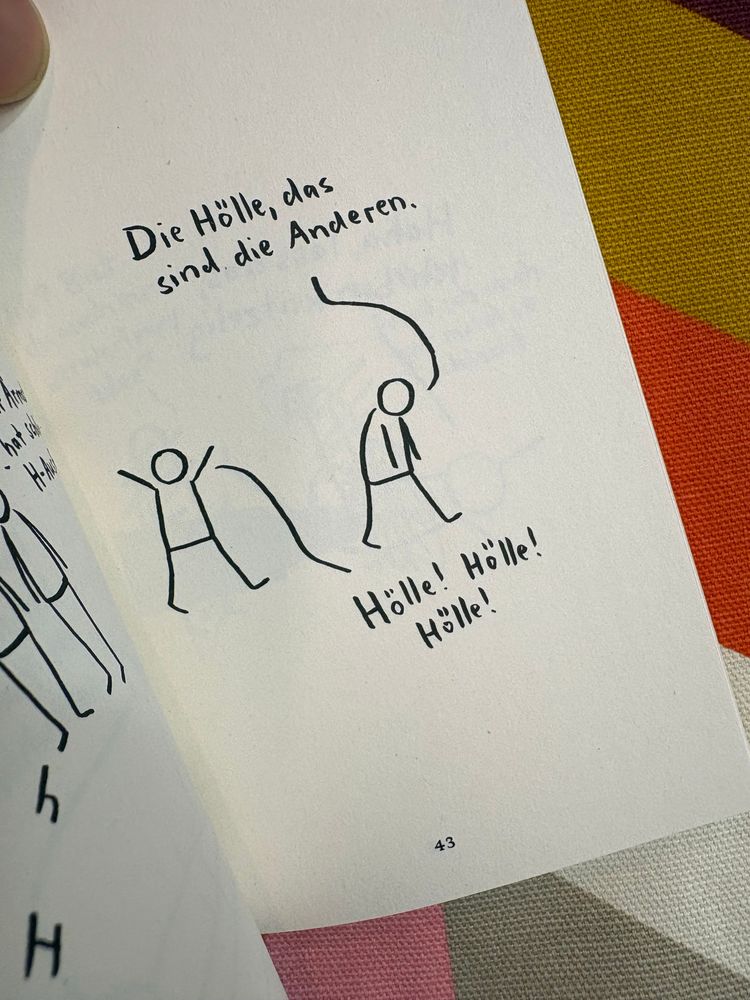 Die Hölle, das
sind die Anderen.
Hölle! Hölle!
Hölle!
43
hat
h
H